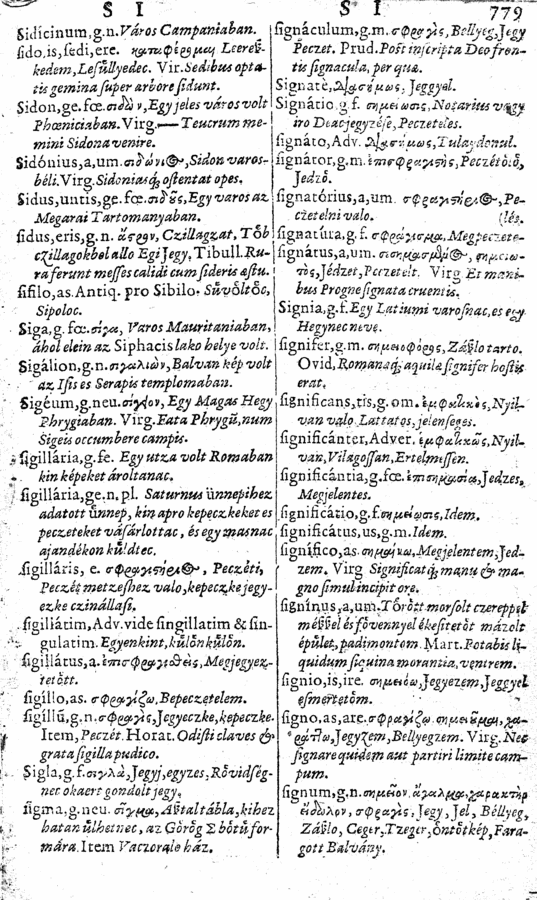 S I
S I
779
Sidicinum, g.n. Város Campaniaban.
sido, is, sedi, ere. καταφέρομαι Leeresz-
kedem, Lesűllyedec. Vir. Sedibus opta-
tis gemina super arbore sidunt.
Sidon, ge. fœ. σιδὼν, Egy jeles város volt
Phœniciaban. Virg.— Teucrum me-
mini Sidona venire.
Sidónius, a, um. Sidon varos-
béli. Virg. Sidoniasq́; ostentat opes.
Sidus, untis, ge. fœ. Egy varos az
Megarai Tartomanyaban.
sidus, eris, g. n. ἄστρον, Czillagzat, Több
czillagokbel allo Egi Jegy, Tibull. Ru-
ra ferunt messes calidi cum sideris æstu.
sifilo, as. Antiq. pro Sibilo.
Sipoloc.
Siga, g. fœ. σίγα, Varos Mauritaniaban,
áhol elein az Siphacis lako helye volt.
Sigálion, g.n. σιγαλιὼν, Balvan kép volt
az Isis es Serapis templomaban.
Sigéum, g. neu. σίγειον, Egy Magas Hegy
Phrygiaban. Virg. Fata Phrygiű, num
Sigeis occumbere campis.
sigillária, g. fe. Egy utza volt Romaban
kin képeket ároltanac.
sigillária, ge. n. pl. Saturnus ünnepihez
adatott ünnep, kin apro kepeczkeket es
peczeteket vásárlottac, és egy masnac
ajandékon kűldtec.
sigilláris, e. Peczéti,
Peczét metzeshez valo, kepeczke jegy-
ezke czinállasi.
sigillátim, Adv. vide singillatim & sin-
gulatim. Egyenkint, kűlőnkűlőn.
sigillátus, a. Megjegyez-
tetőtt.
sigillo, as. σφραγίζω, Bepeczetelem.
sigillű, g. n. σφραγὶς, Jegyeczke, kepeczke.
Item, Peczét. Horat. Odisti claves &
grata sigilla pudico.
Sigla, g. f. σιγλὰ, Jegyj, egyzes, Rővidség-
nec okaert gondolt jegy.
sigma, g. neu. σῖγμα, Asztal tábla, kihez
hatan űlhetnec, az Görög Σ bötű for-
mára. Item Vaczorale ház.
signáculum, g. m. σφραγὶς, Bellyeg, Jegy
Peczet. Prud. Post inscripta Deo fron-
tis signacula, per quæ.
Signatè, Jeggyel.
Signátio, g. f. σημείωσις, Notarius vagy
iro Deac jegyzése, Peczeteles.
signáto, Adv. Tulaydonul.
signátor, g. m. Peczétőlő,
Jedző.
signatórius, a, um. Pe-
czetelni valo. (lés.
signatúra, g. f. σφράγισμα, Megpeczete-
signátus, a, um.
Jédzet, Peczetelt. Virg Et mani-
bus Progne signata cruentis.
Signia, g. f. Egy Latiumi varosnac, es egy
Hegynec neve.
signifer, g. m. σημειοφόρος, Zászlo tarto.
Ovid, Romanaq́; aquilæ signifer hostis
erat.
significans, tis, g. om. Nyil-
van valo Lattatos, jelenseges.
significánter, Adver. Nyil-
van, Vilagossan, Ertelmissen.
significántia, g. fœ. ἐπισημασία, Jedzes,
Megjelentes.
significátio, g. f. σημείωσις, Idem.
significátus, us, g. m. Idem.
signífico, as. σημαίνω, Megjelentem, Jed-
zem. Virg Significatq́; manu & ma-
gno simul incipit ore.
signínus, a, um. Tőrőtt morsolt czereppel
mészszel és fővennyel ékesitetőt mázolt
épűlet, padimontom. Mart. Potabis li-
quidum signina morantia, ventrem.
signio, is, ire. σημειόω, Jegyezem, Jeggyel
esmertetőm.
signo, as, are. σφραγίζω. σημειοῦμαι, χα-
ράττω, Jegyzem, Bellyegzem. Virg. Nec
signare quidem aut partiri limite cam-
pum.
signum, g. n. σημεῖον, ἄγαλμα, χαρακτὴρ
εἴδωλον, σφραγὶς, Jegy, Jel, Béllyeg,
Zászlo, Ceger, Tzeger, őntőtkép, Fara-
gott Balvány.